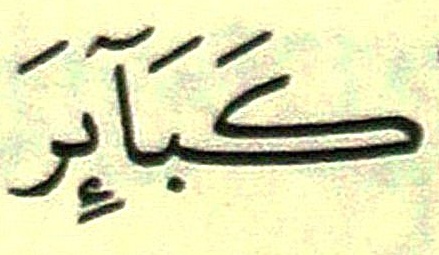 كَبَآئِرَ